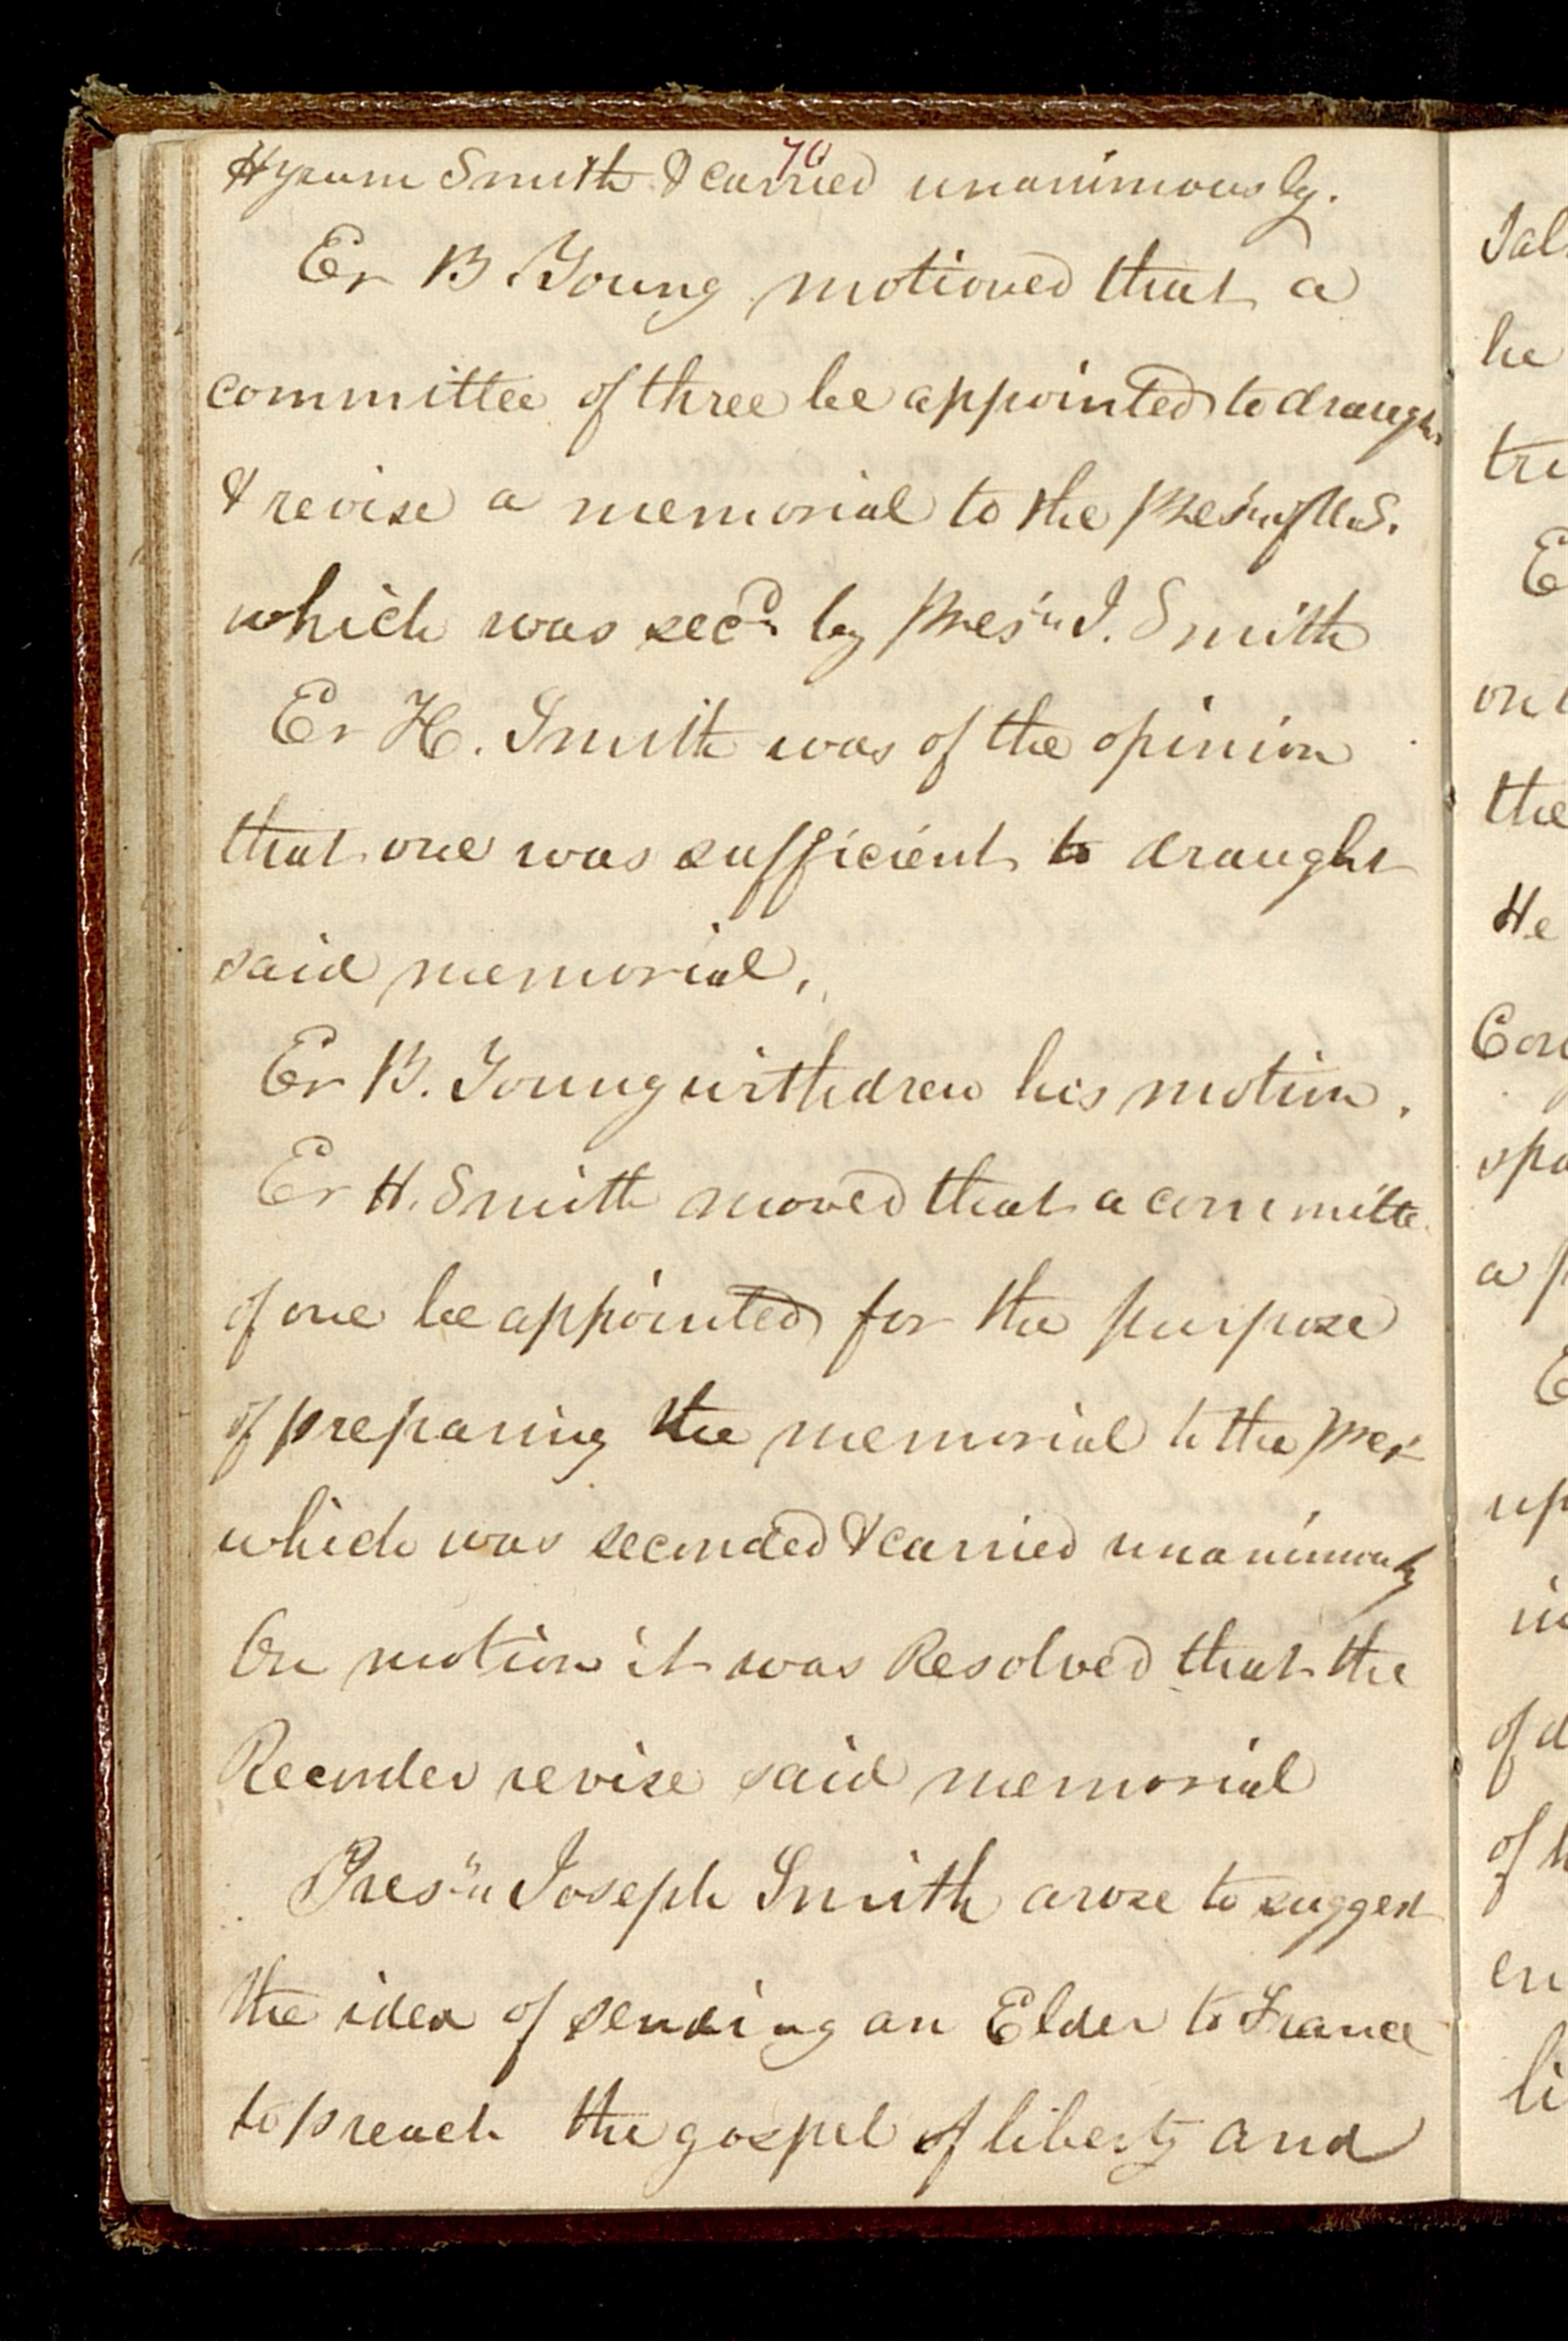 70
Hyrum Smith & carried unanimously.
Er B Young motioned that a
committee of three be appointed to draught
& revise a memorial to the Pres. of U.S.
which was secd. by Pres. J. Smith
Er H. Smith was of the opinion
that one was sufficient to draught
said memorial.
Er B. Young withdrew his motion.
Er H. Smith moved that a committe
of one be appointed for the purpose
of preparing the memorial to the Pres
which was seconded & carried unanimously
On motion it was Resolved that the
Recorder revise said memorial
Pres. Joseph Smith arose to suggest
the idea of sending an Elder to France
to preach the gospel of liberty and
he
the
He